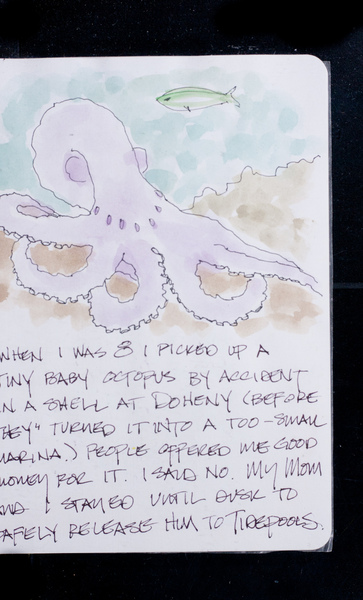 WHEN I WAS 8 I PICKED UP A
TINY BABY OCTOPUS BY ACCIDENT
IN A SHELL AT DOHENY (BEFORE
"THEY" TURNED IT INTO A TOO-SMALL
MARINA.) PEOPLE OFFERED ME GOOD
MONEY FOR IT. I SAID NO. MY MOM
AND I STAYED UNTIL DUSK TO
SAFELY RELEASE HIM TO TIDEPOOLS.